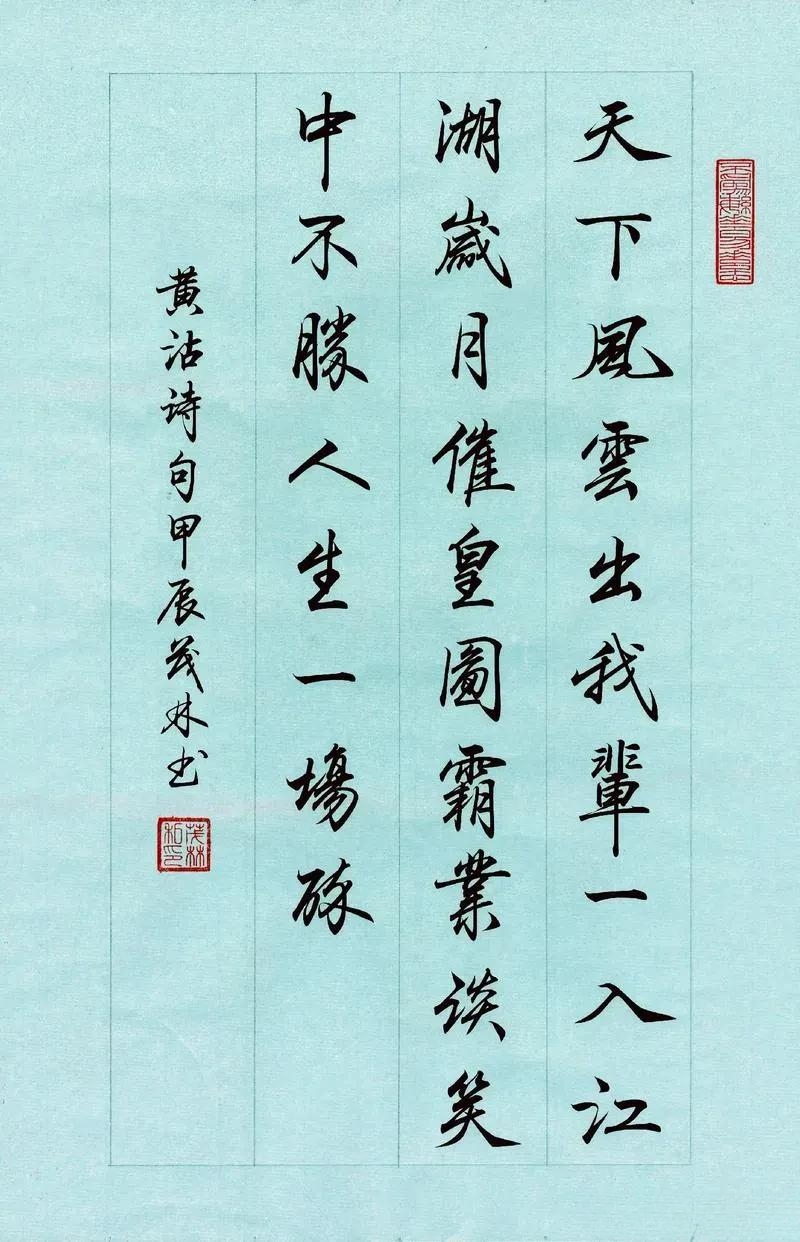 天下風雲出我輩一入江
湖歲月催皇圖霸業谈笑
中不勝人生一場醉
黄沾诗句甲辰茂林书
茂林私印